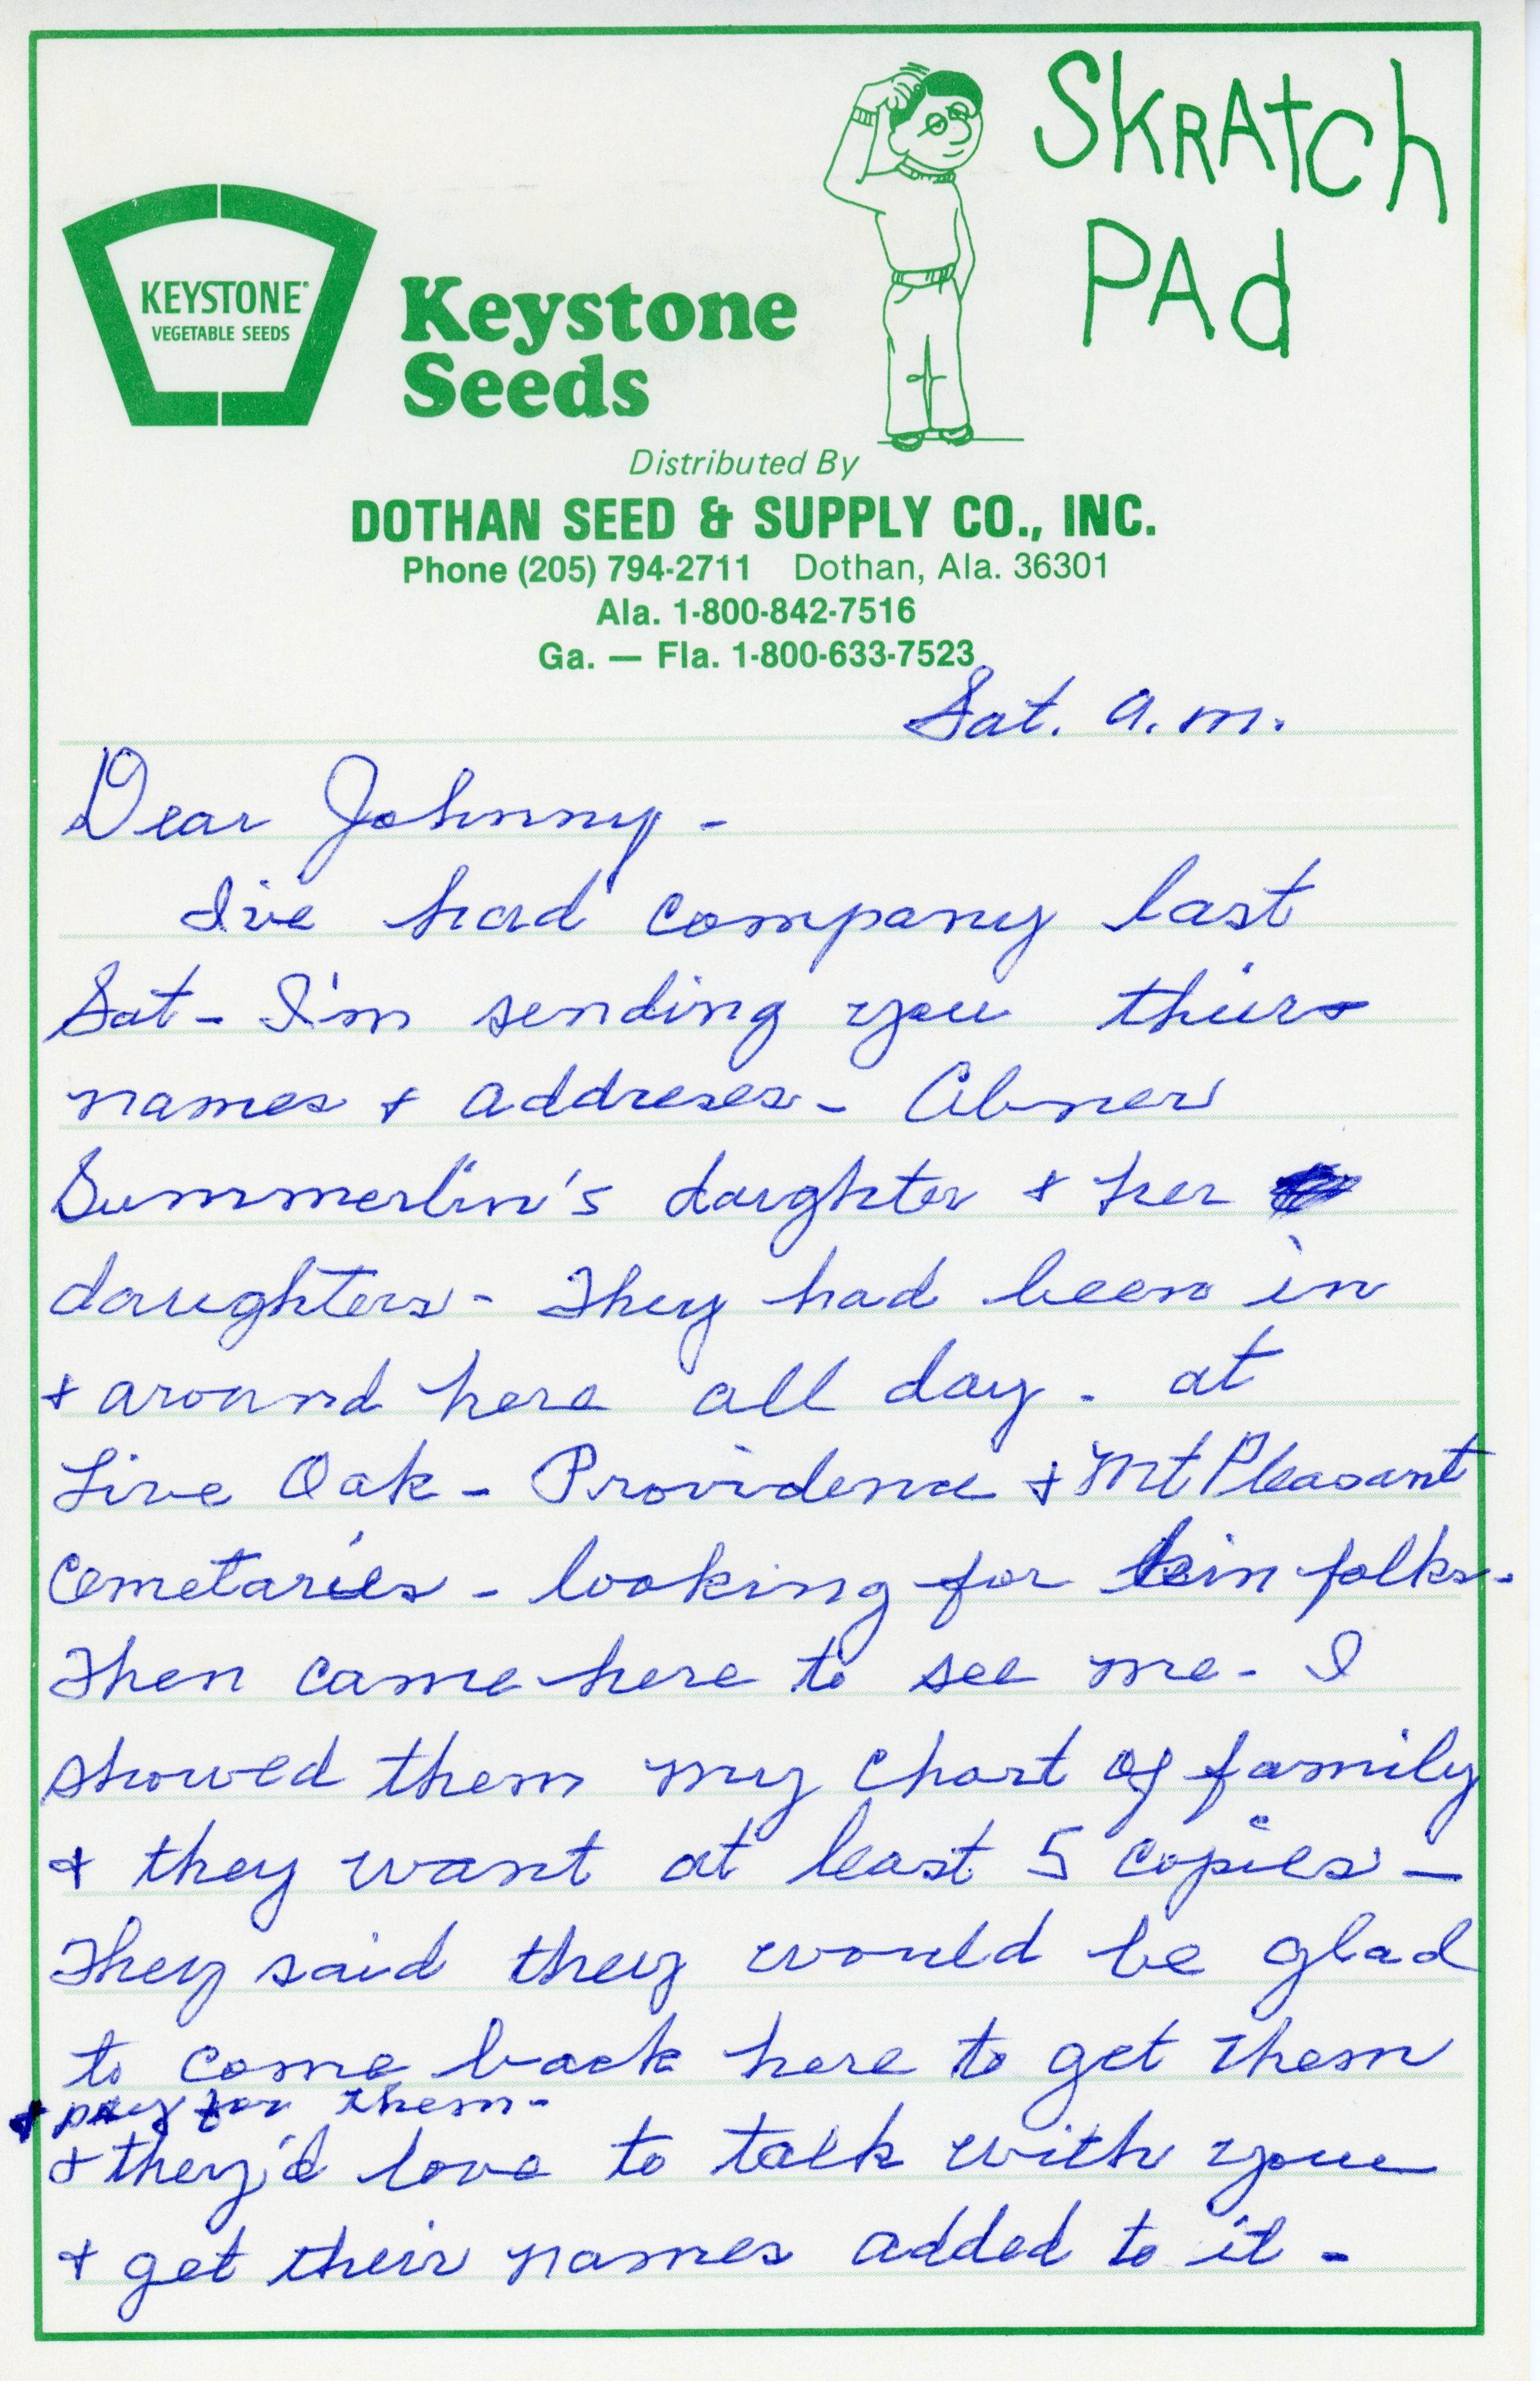 SKRAtCh
PAd
KEYSTONE®
VEGETABLE SEEDS
Keystone
Seeds
Distributed By
DOTHAN SEED & SUPPLY CO., INC.
Phone (205) 794-2711 Dothan, Ala. 36301
Ala. 1-800-842-7516
Ga. — Fla. 1-800-633-7523
Sat. a.m.
Dear Johnny -
I've had company last
Sat - I'm sending you thiers
names + addreses - Abner
Summerlin's daughter + her
daughters - They had been in
+ around here all day - at
Live Oak - Providence + Mt Pleasant
Cemetaries - looking for kin folks -
Then came here to see me - I
showed them my chart of family
+ they want at least 5 copies —
They said they would be glad
to come back here to get them
+ pay for them -
+ they'd love to talk with you
+ get their names added to it -